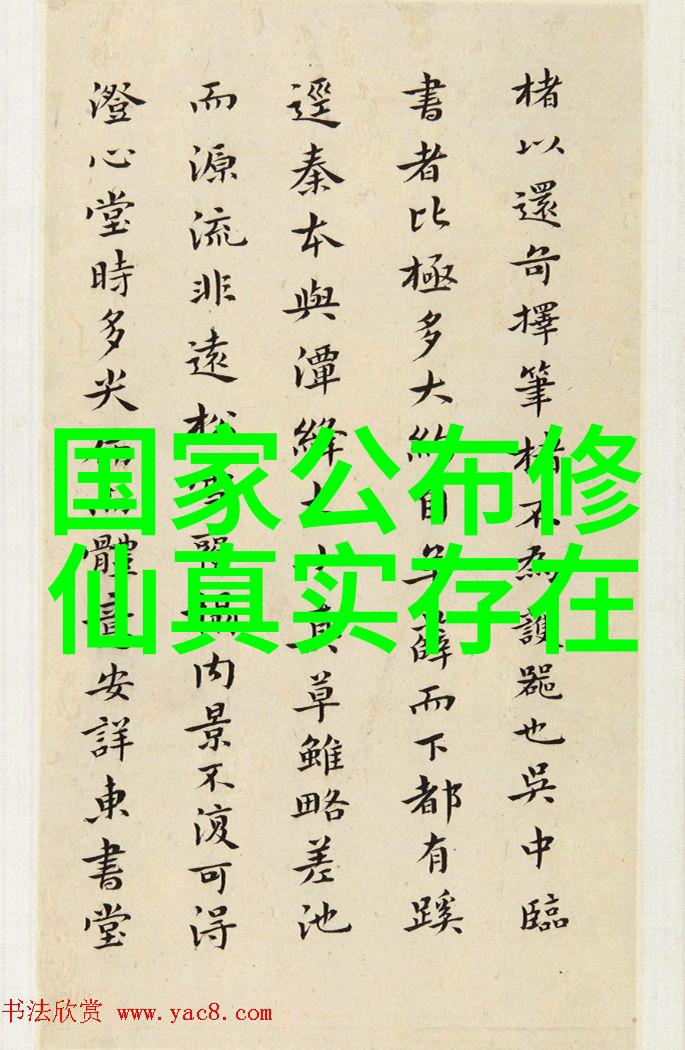 楮以還奇擇筆楮不為護器也吳中臨
書者比極多大約自吳薛而下都有蹊
逕秦本與潭絳大小真草雖略差池
而源流非遠松雪臨內景不復可得
澄心堂時多尖體意安詳東書堂
国家公布修
仙真实存在
书法欣赏 www.yac8.com